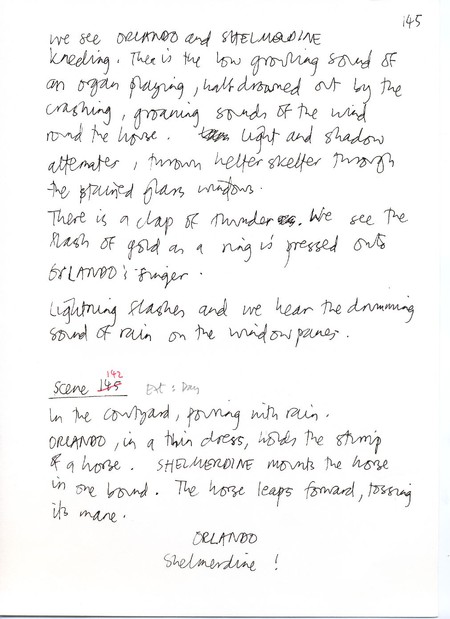 145
We see ORLANDO and SHELMERDINE
kneeling. There is the low growling sound of
an organ playing, half drowned out by the
crashing, groaning sounds of the wind
round the house. Light and shadow
alternates, thrown helter skelter through
the stained glass windows.
There is a clap of thunder. We see the
flash of gold as a ring is pressed onto
ORLANDO's finger.
Lightning flashes and we hear the drumming
sound of rain on the windowpanes.
Scene 145 142 Ext: Day
In the courtyard, pouring with rain.
ORLANDO, in a thin dress, holds the stirrup
of a horse. SHELMERDINE mounts the horse
in one bound. The horse leaps forward, tossing
its mane.
ORLANDO
Shelmerdine!